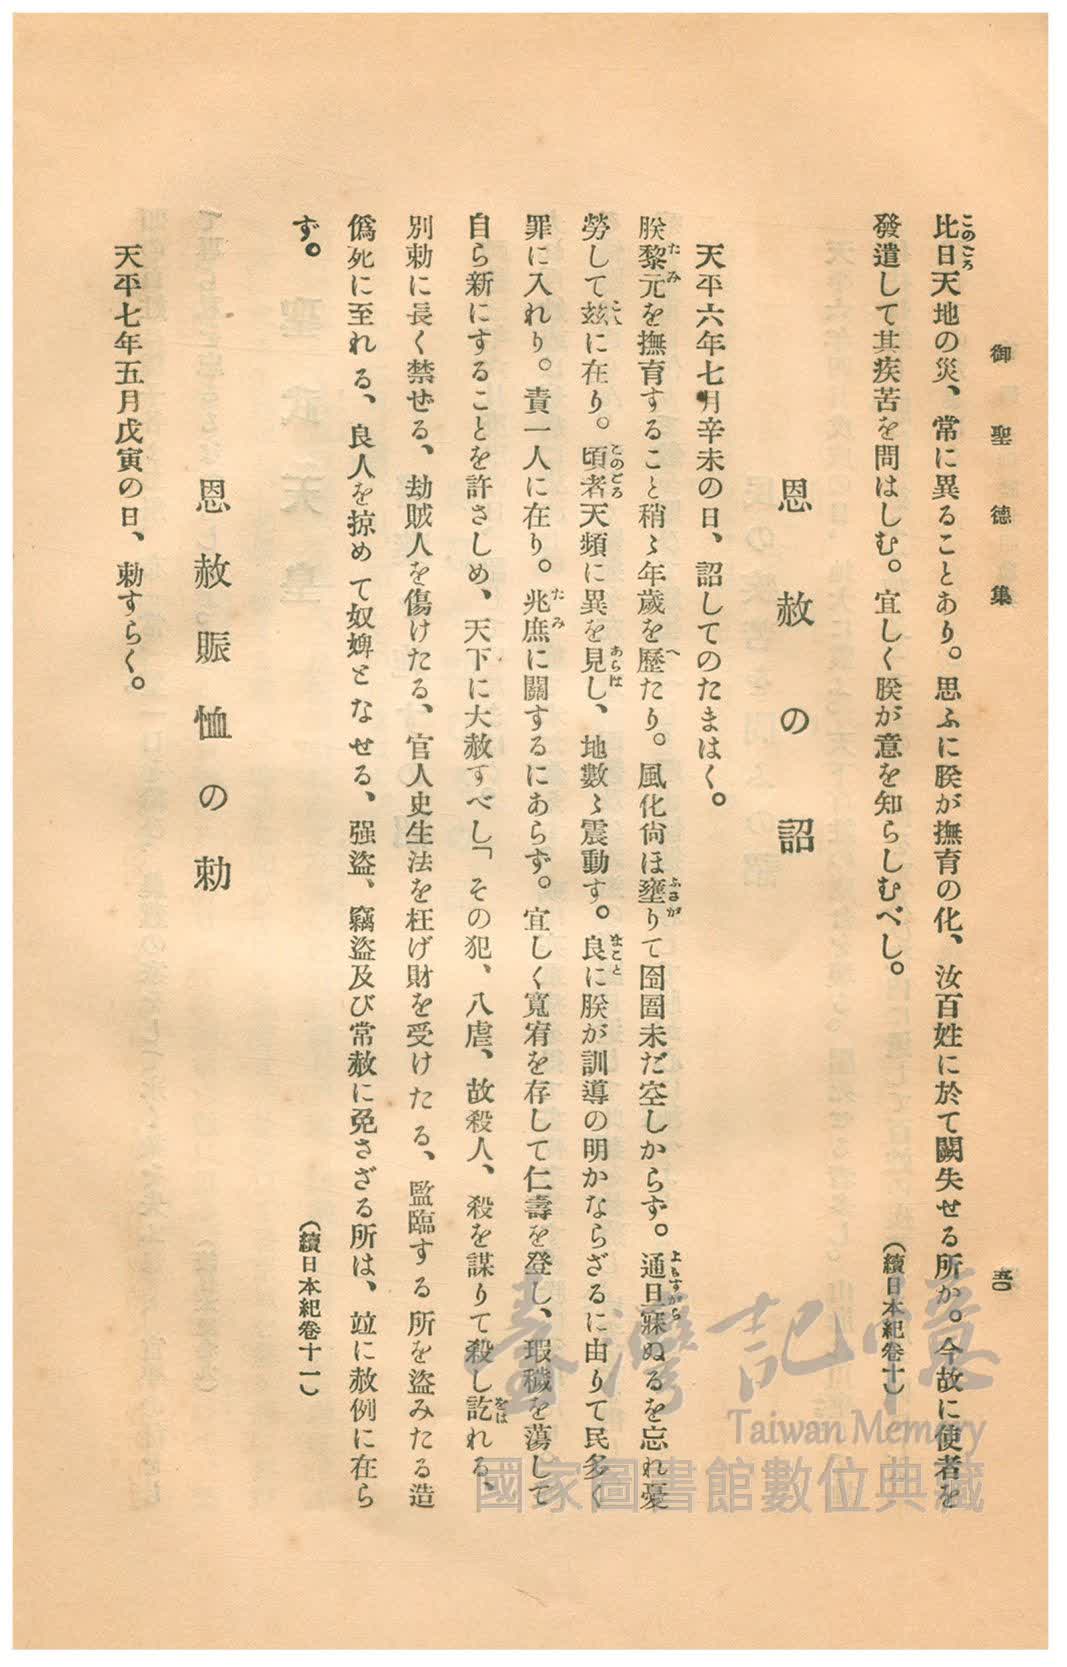 御聖德集
五〇
比日天地の災、常に異ることあり。思ふに朕が撫育の化、汝百姓に於て闕失せる所か。今故に使者を
このごろ
發遣して其疾苦を問はしむ。宜しく朕が意を知らしむべし。
(續日本紀卷十)
恩赦の詔
天平六年七月辛未の日、詔してのたまはく。
朕黎元を撫育すること稍〻年歲を歷たり。風化尙ほ壅りて囹圄未だ空しからず。通旦寐ぬるを忘れ憂
たみ
へ
ふさが
よもすがら
勞して玆に在り。頃者天頻に異を見し、地數〻震動す。良に朕が訓導の明かならざるに由りて民多く
このごろ
あらは
まこと
罪に入れり。責一人に在り。兆庶に關するにあらず。宜しく寬宥を存して仁壽を登し、瑕穢を蕩して
たみ
自ら新にすることを許さしめ、天下に大赦すべし「その犯、八虐、故殺人、殺を謀りて殺し訖れる、
をは
別勅に長く禁ぜる、劫賊人を傷けたる、官人史生法を枉げ財を受けたる、監臨する所を盜みたる造
僞死に至れる、良人を掠めて奴婢となせる、强盜、竊盜及び常赦に免さざる所は、竝に赦例に在ら
ず。
(續日本紀卷十一)
恩赦賑恤の勅
天平七年五月戊寅の日、勅すらく。
臺灣記憶
Taiwan Memory
國家圖書館數位典藏